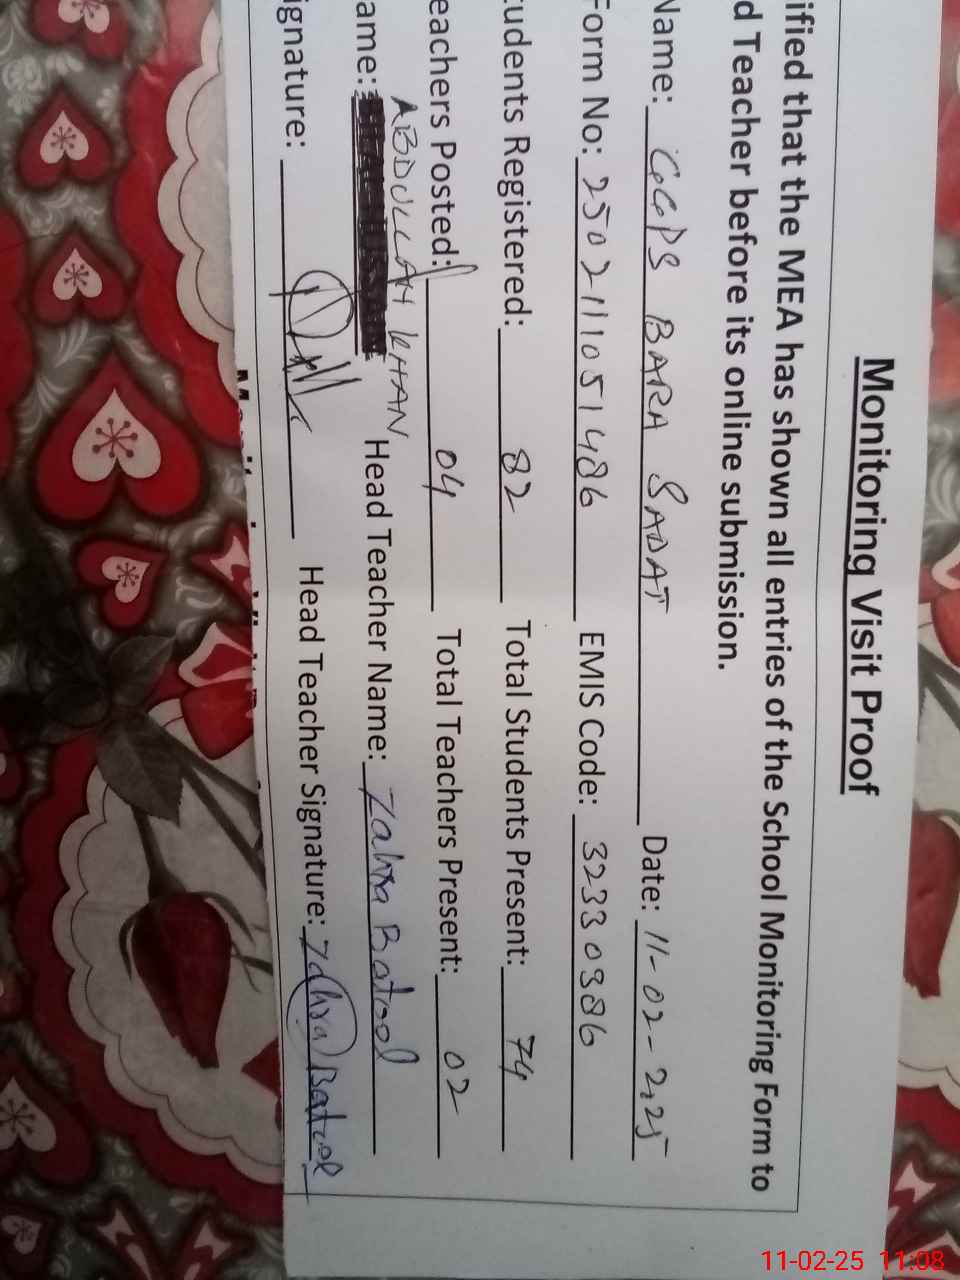 Monitoring Visit Proof
ified that the MEA has shown all entries of the School Monitoring Form to
d Teacher before its online submission.
Name: GGPS BARA SADAT Date: 11-02-2025
Form No: 250211051486 EMIS Code: 32330386
tudents Registered: 82 Total Students Present: 74
eachers Posted: 04 Total Teachers Present: 02
ame: ABDULLAH KHAN Head Teacher Name: Zahra Batool
ignature: Head Teacher Signature: Zahra Batool
11-02-25 11:08